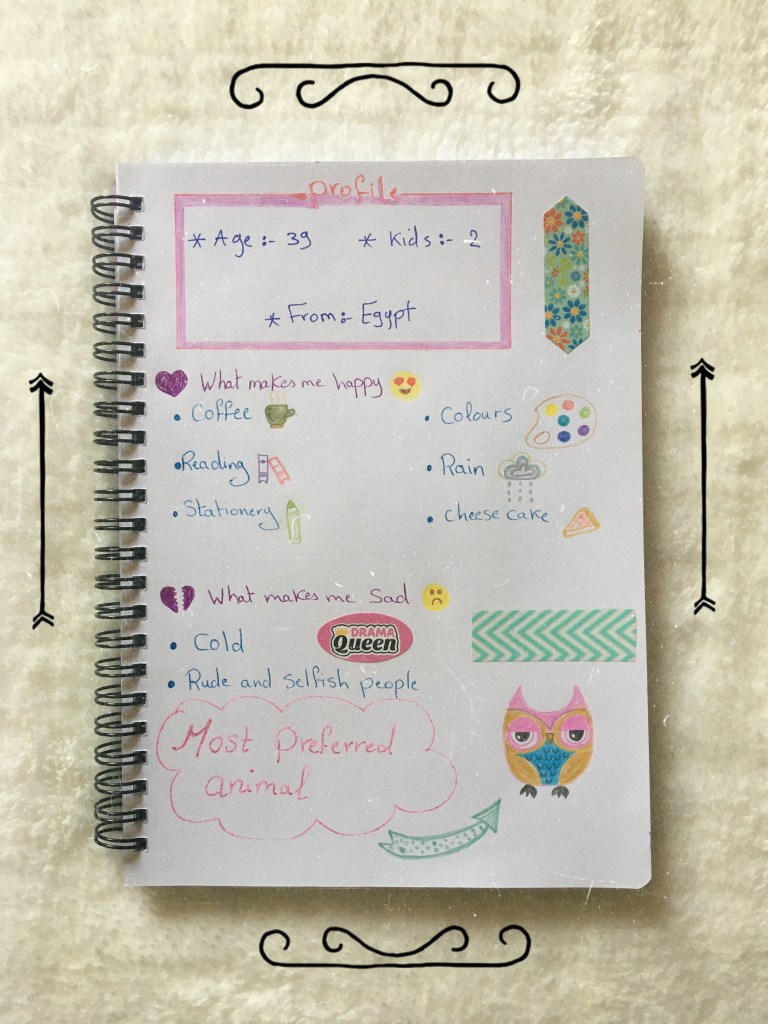 profile
* Age :- 39
* Kids :- 2
* From :- Egypt
What makes me happy
• Coffee
• Colours
• Reading
• Rain
• Stationery
• cheese cake
What makes me Sad
• Cold
DRAMA
Queen
• Rude and selfish people
Most preferred
animal